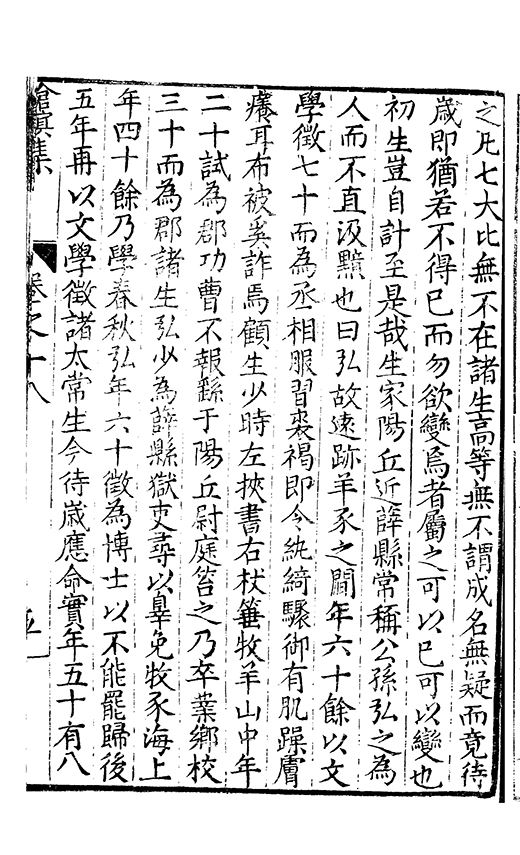 之凡七大比無不在諸生高等無不謂成名無疑而竟待
歲即猶若不得已而勿欲變焉者屬之可以已可以變也
初生豈自計至是哉生家陽丘近薛縣常稱公孫弘之為
人而不直汲黯也曰弘故遠跡羊豕之間年六十餘以文
學徵七十而為丞相服習裘褐即令紈綺驟御有肌躁膚
癢耳布被奚詐焉顧生少時左挾書右杖箠牧羊山中年
二十試為郡功曹不報繇于陽丘尉庭笞之乃卒業鄉校
三十而為郡諸生弘少為薛縣獄吏尋以辠免牧豕海上
年四十餘乃學春秋弘年六十徵為博士以不能罷歸後
五年再以文學徵諸太常生今待歲應命實年五十有八
滄溟集
卷之十八
五